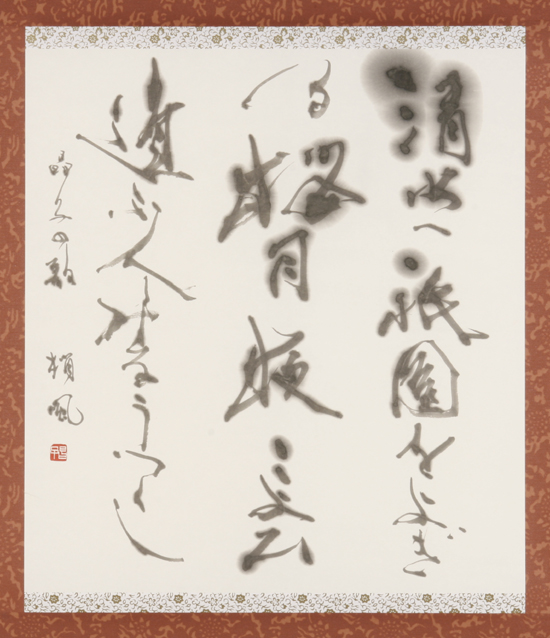 清水へ祇園をよぎ
る櫻月夜こよひ
逢ふ人みなうつくし
晶子の歌